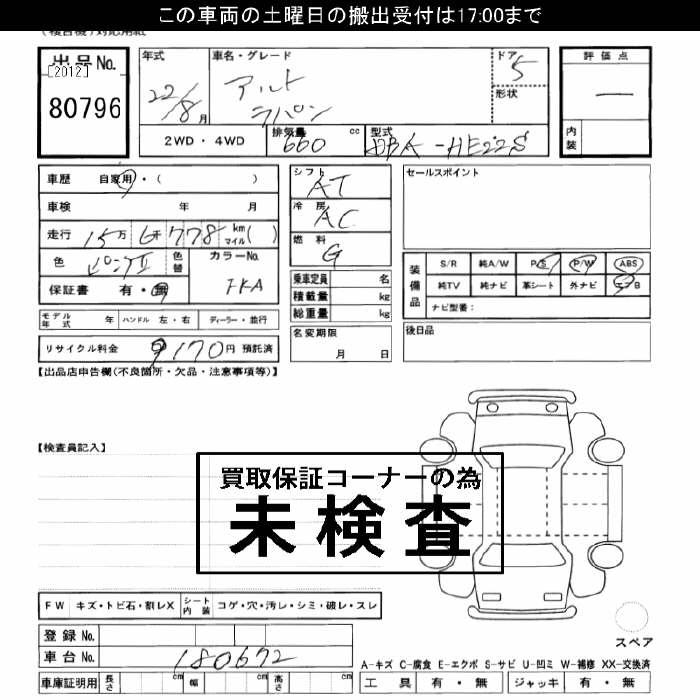 この車両の土曜日の搬出受付は17:00まで
出品No.
[2012]
80796
年式
22/8月
車名・グレード
アルト
ラパン
ドア
5
形状
評価点
―
内装
2WD・4WD
排気量
660 cc
型式
DBA-HE22S
車歴 自家用・( )
車検 年 月
走行 15万6千778 km マイル( )
色 ピンクII 色替
カラーNo.
保証書 有・無
シフト
AT
冷房
AC
燃料
G
乗車定員 名
積載量 kg
総重量 kg
セールスポイント
装備品
S/R 純A/W P/S P/W ABS
純TV 純ナビ 革シート 外ナビ エアB
ナビ型番:
モデル年式 年 ハンドル 左・右 ディーラー・並行
名変期限
月 日
後日品
リサイクル料金 9170円 預託済
【出品店申告欄(不良箇所・欠品・注意事項等)】
【検査員記入】
買取保証コーナーの為
未検査
FW キズ・トビ石・割レX シート内装 コゲ・穴・汚レ・シミ・破レ・スレ
登録No.
車台No. 180672
スペア
A-キズ C-腐食 E-エクボ S-サビ U-凹ミ W-補修 XX-交換済
車庫証明用 長さ cm 幅 cm 高さ cm
工具 有・無 ジャッキ 有・無